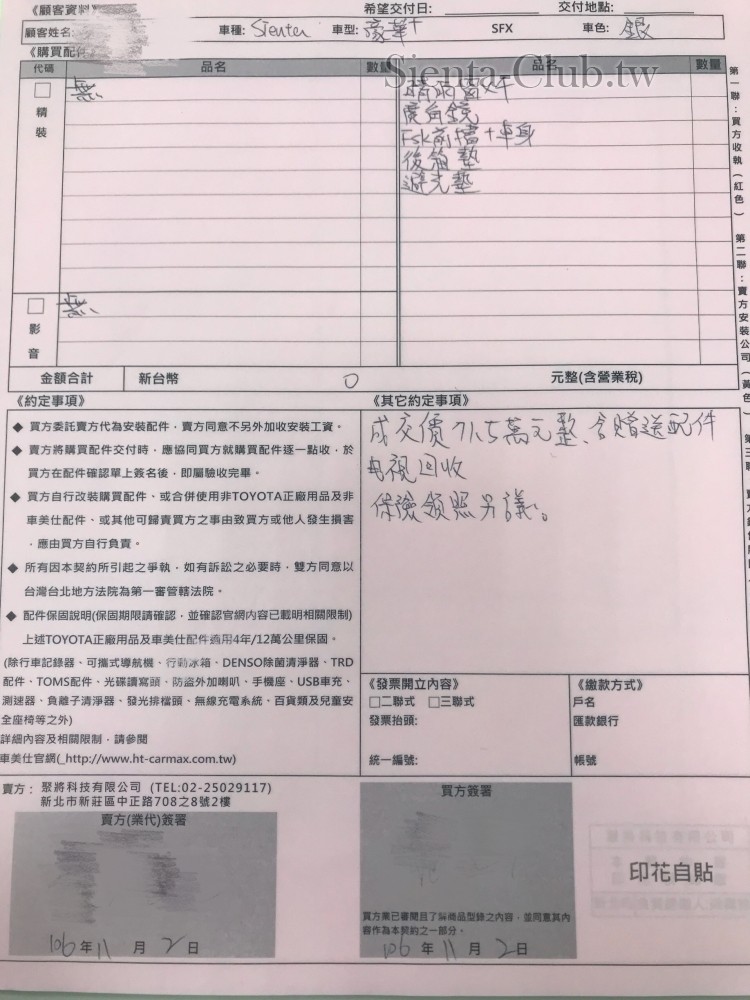 《顧客資料》 希望交付日: 交付地點:
顧客姓名: 車種: Sienta 車型: 豪華+ SFX 車色: 銀
《購買配件》
Sienta-Club.tw
代碼 品名 數量 品名 數量
精裝
無
晴雨窗
廣角鏡
FSK前檔+車身
後箱墊
避光墊
影音
無
第一聯:買方收執(紅色) 第二聯:賣方安裝公司(黃色)
金額合計 新台幣 0 元整(含營業稅)
《約定事項》
◆ 買方委託賣方代為安裝配件,賣方同意不另外加收安裝工資。
◆ 賣方將購買配件交付時、應協同買方就購買配件逐一點收,於
買方在配件確認單上簽名後,即屬驗收完畢。
◆ 買方自行改裝購買配件、或合併使用非TOYOTA正廠用品及非
車美仕配件、或其他可歸責買方之事由致買方或他人發生損害
,應由買方自行負責。
◆ 所有因本契約所引起之爭執,如有訴訟之必要時,雙方同意以
台灣台北地方法院為第一審管轄法院。
◆ 配件保固說明(保固期限請確認,並確認官網内容已載明相關限制)
上述TOYOTA正廠用品及車美仕配件適用4年/12萬公里保固。
(除行車記錄器、可攜式導航機、行動冰箱、DENSO除菌清淨器、TRD
配件、TOMS配件、光碟讀寫頭、防盜外加喇叭、手機座、USB車充、
測速器、負離子清淨器、發光排檔頭、無線充電系統、百貨類及兒童安
全座椅等之外)
詳細內容及相關限制,請參閱
車美仕官網(_http://www.ht-carmax.com.tw)
《其它約定事項》
成交價71.5萬元整、含贈送配件
電視回收
保險領照另議。
《發票開立內容》
□二聯式 □三聯式
發票抬頭:
統一編號:
《繳款方式》
戶名
匯款銀行
帳號
賣方: 聚將科技有限公司 (TEL:02-25029117)
新北市新莊區中正路708之8號2樓
賣方(業代)簽署
106年11月2日
買方簽署
買方業已審閱且了解商品型錄之內容,並同意其內
容作為本契約之一部分。
106年11月2日
印花自貼